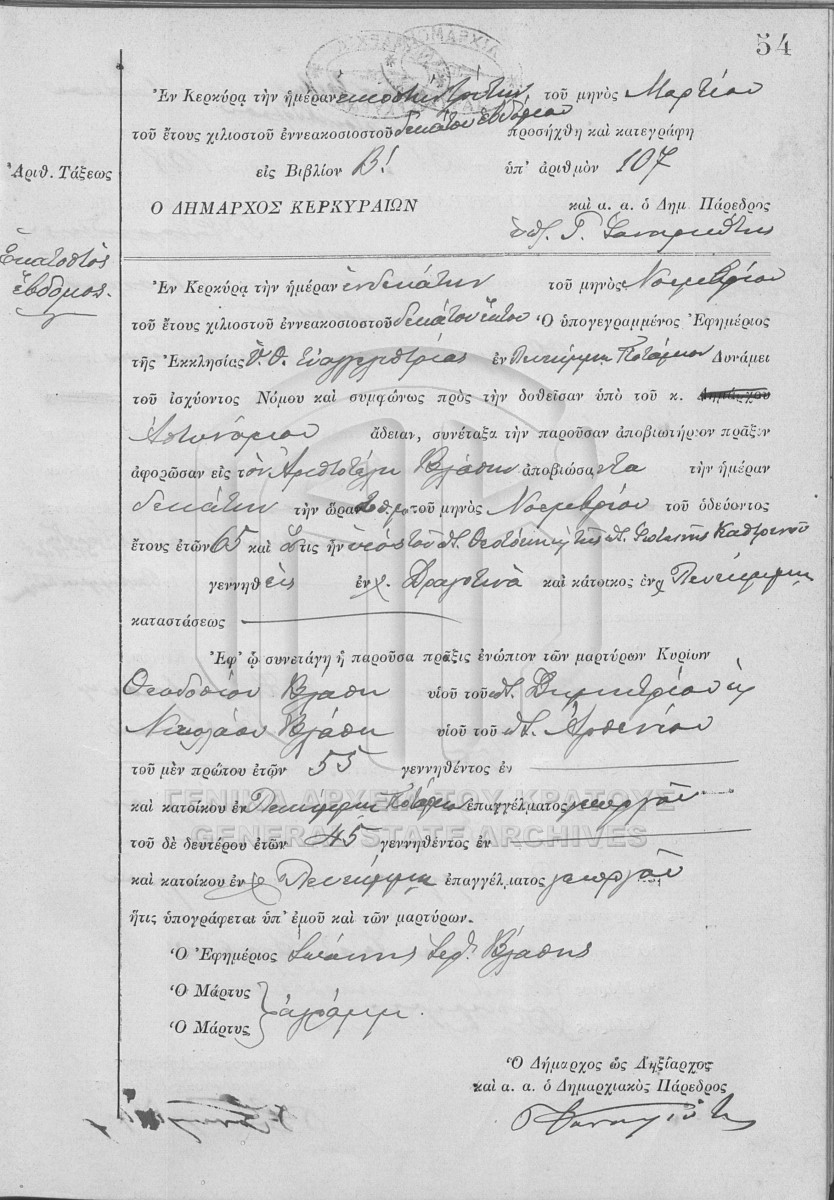 54
Ἐν Κερκύρᾳ τὴν ἡμέραν εἰκοστὴν τρίτην τοῦ μηνὸς Μαρτίου
τοῦ ἔτους χιλιοστοῦ ἐννεακοσιοστοῦ δεκάτου ἑβδόμου προσήχθη καὶ κατεγράφη
Ἀριθ. Τάξεως
εἰς Βιβλίον Β! ὑπ' ἀριθμὸν 107
Ο ΔΗΜΑΡΧΟΣ ΚΕΡΚΥΡΑΙΩΝ καὶ α. α. ὁ Δημ Πάρεδρος
Ἑκατοστὸς
ἕβδομος.
Ἐν Κερκύρᾳ τὴν ἡμέραν ἑνδεκάτην τοῦ μηνὸς Νοεμβρίου
τοῦ ἔτους χιλιοστοῦ ἐννεακοσιοστοῦ δεκάτου ἕκτου Ὁ ὑπογεγραμμένος Ἐφημέριος
τῆς Ἐκκλησίας Ὑ. Θ. Εὐαγγελιστρίας ἐν Ποταμίου Δυνάμει
τοῦ ἰσχύοντος Νόμου καὶ συμφώνως πρὸς τὴν δοθεῖσαν ὑπὸ τοῦ κ. Δημάρχου
Ἀστυνόμου ἄδειαν, συνέταξα τὴν παροῦσαν ἀποβιωτήριον πρᾶξιν
ἀφορῶσαν εἰς τὸν Ἀριστοτέλη Βλάση ἀποβιώσαντα τὴν ἡμέραν
δεκάτην τὴν ὥραν τοῦ μηνὸς Νοεμβρίου τοῦ ὁδεύοντος
ἔτους ἐτῶν 65 καὶ ὅστις ἦν υἱὸς τοῦ
γεννηθεὶς ἐν χ. Δραγοτινὰ καὶ κάτοικος ἐν χ
καταστάσεως
Ἐφ' ᾧ συνετάγη ἡ παροῦσα πρᾶξις ἐνώπιον τῶν μαρτύρων Κυρίων
Θεοδοσίου Βλάση υἱοῦ τοῦ π. Δημητρίου κ
Νικολάου Βλάση υἱοῦ τοῦ π. Ἀρσενίου
τοῦ μὲν πρώτου ἐτῶν 55 γεννηθέντος ἐν
καὶ κατοίκου ἐν ἐπαγγέλματος γεωργοῦ
ΓΕΝΙΚΑ ΑΡΧΕΙΑ ΤΟΥ ΚΡΑΤΟΥΣ
GENERAL STATE ARCHIVES
τοῦ δὲ δευτέρου ἐτῶν 45 γεννηθέντος ἐν
καὶ κατοίκου ἐν χ ἐπαγγέλματος γεωργοῦ
ἥτις ὑπογράφεται ὑπ' ἐμοῦ καὶ τῶν μαρτύρων.
Ὁ Ἐφημέριος Ἰωάννης Βλάσης
Ὁ Μάρτυς
ἀγράμμ.
Ὁ Μάρτυς
Ὁ Δήμαρχος ὡς Ληξίαρχος
καὶ α. α. ὁ Δημαρχιακὸς Πάρεδρος